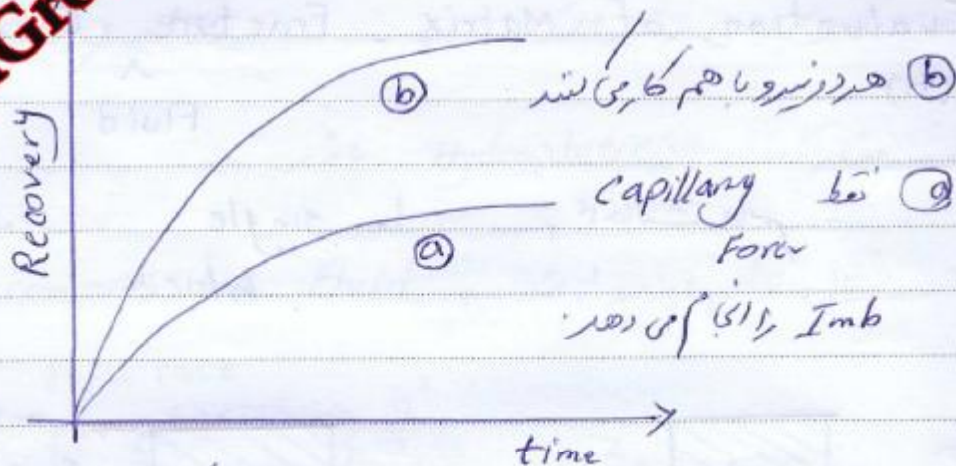 Recovery
ⓑ هر دو نیرو با هم کار می کنند
ⓑ
ⓐ فقط Capillary
Force
Imb را انجام می دهد.
ⓐ
time